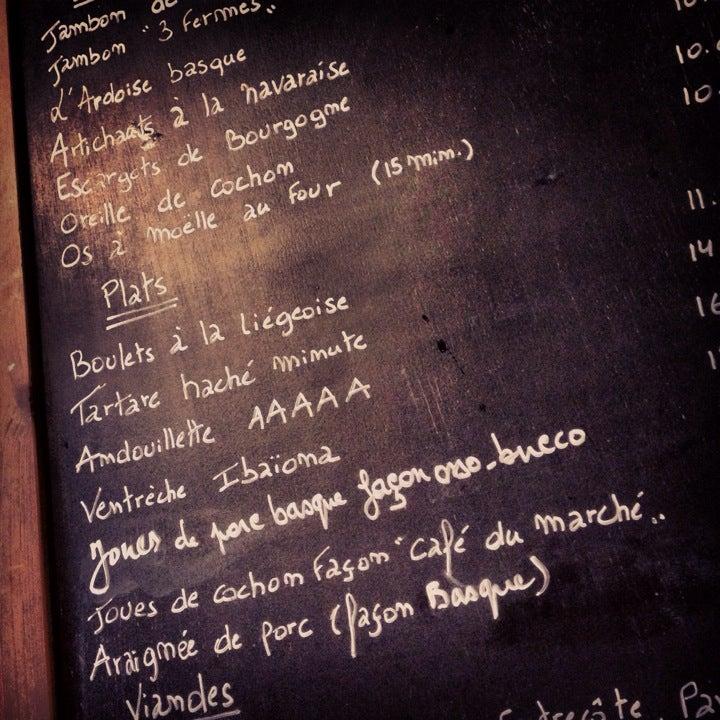 Jambon de
Jambon "3 Fermes"..
L'Ardoise basque 10.
Artichauts à la navaraise 10.
Escargots de Bourgogne
Oreille de cochon
Os à moëlle au Four (15 min.)
Plats 11.
Boulets à la liégeoise 14
Tartare haché minute
Andouillette AAAAA
Ventrèche Ibaïona
Joues de porc basque façon osso-bucco
Joues de cochon Façon "café du marché..
Araignée de porc (façon Basque)
Viandes
Entrecôte